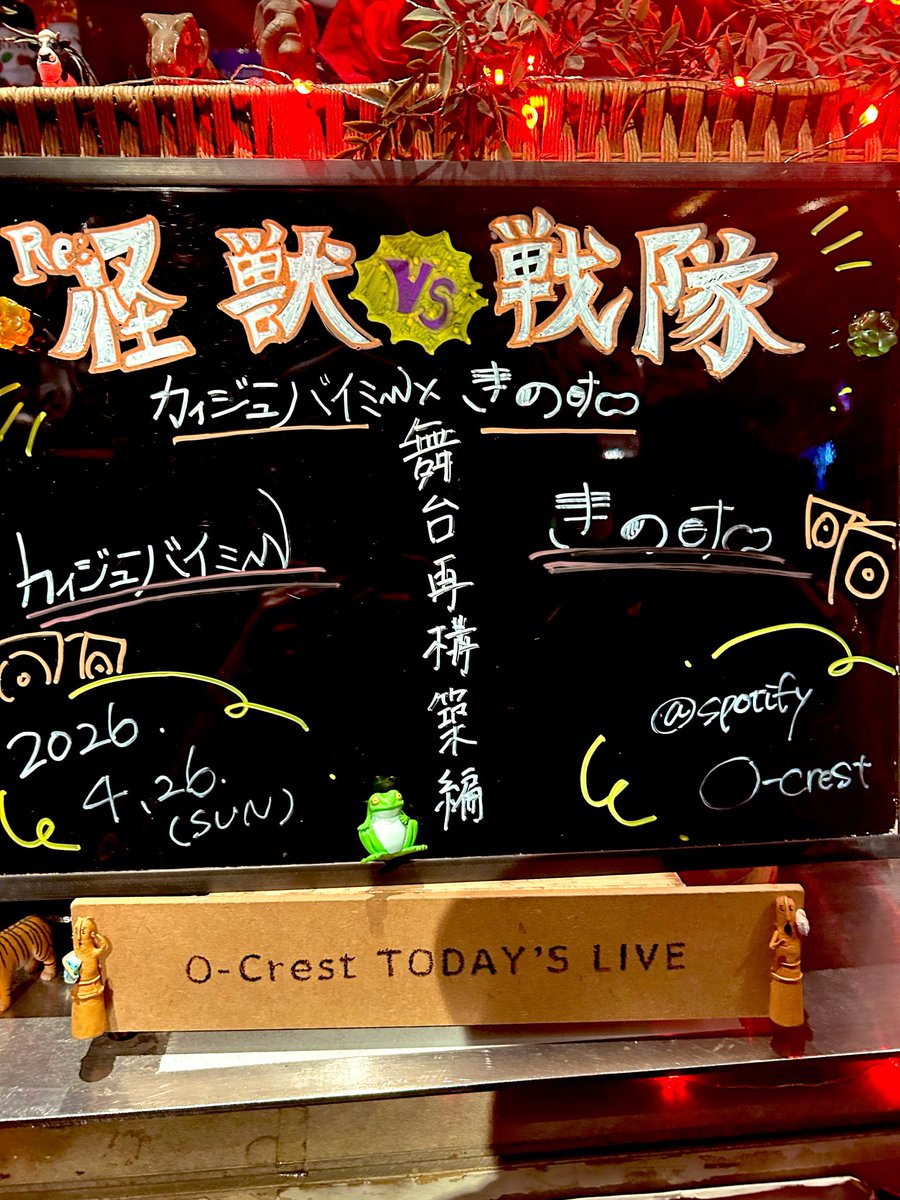 Re:怪獣 VS 戦隊
カイジューバイミー × きのホ。
舞台再構築編
カイジューバイミー
きのホ。
2026.
4.26.
(SUN)
@spotify
O-crest
O-Crest TODAY'S LIVE